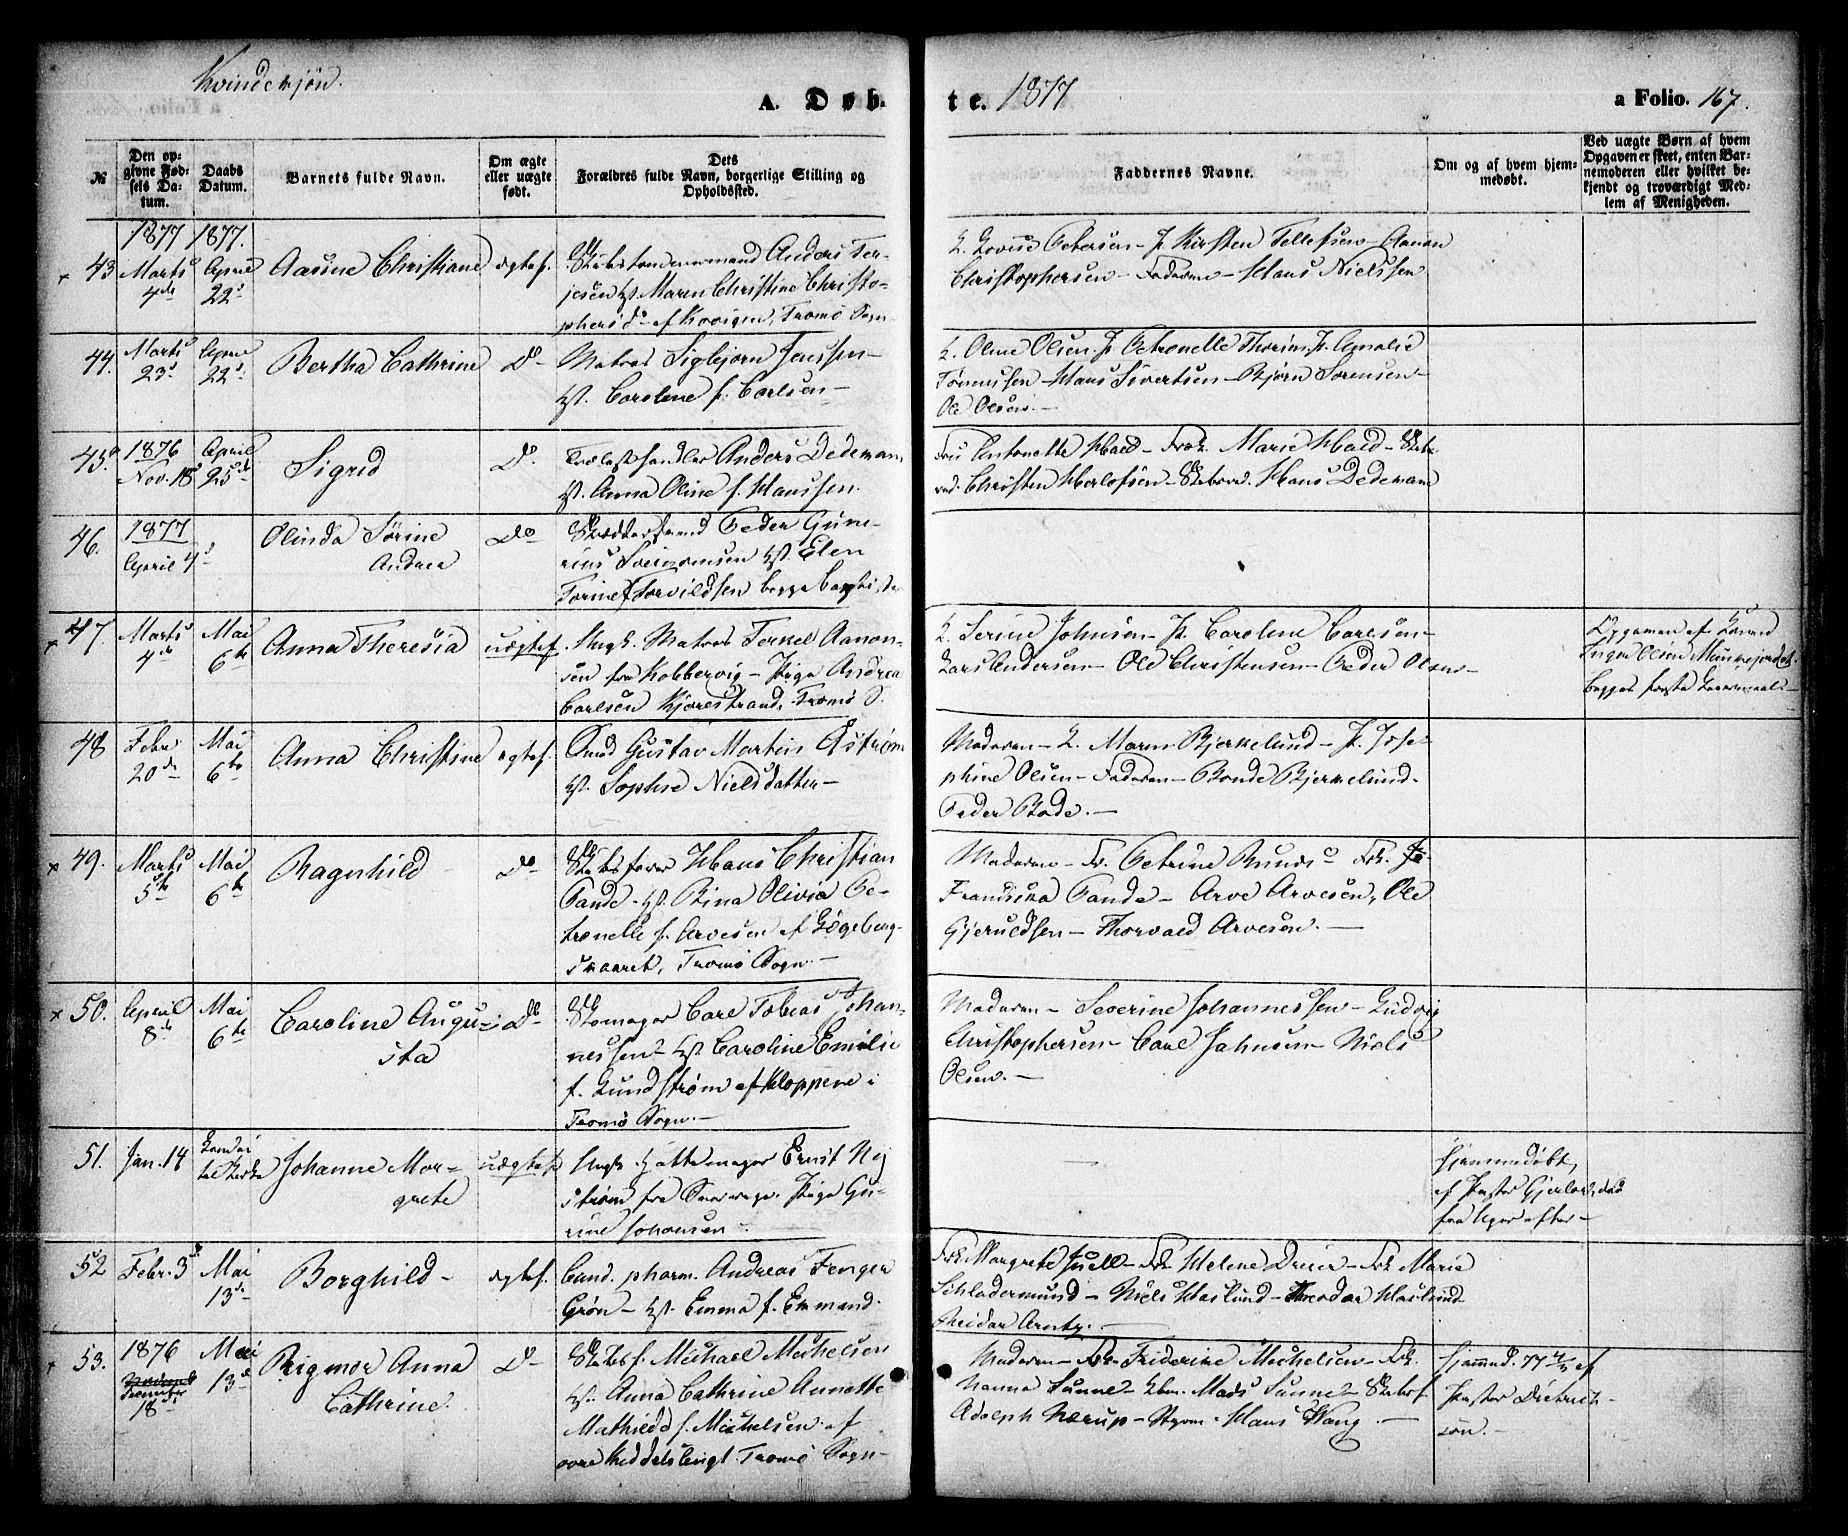 Kvindekjøn.
A. Døb-
te. 1877
a Folio. 167.
№
Den op-
givne Fød-
sels Da-
tum.
Daabs
Datum.
Barnets fulde Navn.
Om ægte
eller uægte
født.
Dets
Forældres fulde Navn, borgerlige Stilling og
Opholdssted.
Faddernes Navne.
Om og af hvem hjem-
medøbt.
Ved uægte Børn af hvem
Opgaven er skeet, enten Bar-
nemoderen eller hvilket be-
kjendt og troværdigt Med-
lem af Menigheden.
1877 1877.
43 Marts 4de April 22d Aasine Christiane ægtef.
Anders Ter-
jesen & Maren Christine Christo-
phersd. af Kovigen, Tromø Sogn
K. Lovise Petersen – P. Kirsten Tellefsen – Aanon
Christophersen – Faderen – Hans Nielssen
44. Marts 23d April 22d Bertha Cathrine Do
Matros Sigbjørn Jenssen –
&. Caroline f. Carlsen –
K. Oline Olsen P. Petronelle P. Amalie
Tønnessen – Hans Sivertsen – Bjørn Sørensen –
Ole Olsen. –
45. 1876 Nov. 18 April 25de Sigrid Do.
Trælasthandler Anders Dedekam
&. Anna Oline f. Hanssen.
Fru Antonette Hald – Frk. Marie Hald – Skibs-
red. Christen Herlofsen – Skibsred. Hans Dedekam
46. 1877 April 4d Olinda Sørine
Andrea Do
Peder Gune-
rius & Elen
Torine f. Torvildsen begge
47. Marts 4de Mai 6te Anna Theresia uægtef.
Ungk. Matros Terkel Aanon-
sen fra Kobbervig – Pige Andrea
Carlsen Kjørestrand, Tromø S.
K. Serine Johnsen – P. Caroline Carlsen –
Lars Andersen – Ole Christensen – Peder Olsen –
Opgaven af
Olsen
begges første Leiermaal –
48 Febr 20de Mai 6te Anna Christine ægtef.
Gustav Martin Åstrøm
&. Sophie Nielsdatter –
Moderen – K. Maren Bjerkelund – P. Jose-
phine Olsen – Faderen – Bonde Bjerkelund.
Peder Bode. –
49. Marts 5te Mai 6te Ragnhild Do
Skibsfører Hans Christian
Tande. &. Bina Olivia Pe-
tronelle f. Arvesen af Gjøgeberg-
skaaret, Tromø Sogn –
Moderen – Fr. Petrine Frk.
Franciska Tande – Arve Arvesen, Ole
Gjeruldsen – Thorvald Arvesen. –
50. April 8de Mai 6te Caroline Augu-
sta Do
Skomager Carl Tobias Johan-
nessen – &. Caroline Emilie
f. Lundstrøm af Kloppene i
Tromø Sogn. –
Moderen – Severine Johannessen – Ludvig
Christophersen – Carl Johnsen – Niels
Olsen. –
51. Jan. 14 Johanne Mar-
grete uægtef.
Ungk. Hattemager Ernst Nij
strøm fra Pige Gu-
rine Johansen
Hjemmedøbt
af Pastor
52 Febr. 3d Mai 13de Borghild – ægtef.
Cand. pharm. Andreas Fenger
Grøn – &. Emma f. Emmand.
Frk. Margrete Juell – Frk Helene Dreier – Frk Marie
Schladermund – Niels Haslund – Theodor Haslund
Reidar Arntz. –
53. 1876
18de Mai 13de Rigmor Anna
Cathrine Do
Skibsf. Michael Michelsen
&. Anna Cathrine Annette
Mathilde f. Michelsen af
Tromø Sogn –
Moderen – Frk Friderine Michelsen – Frk.
Nanna Sunne – Mads Sunne – Skibsf.
Adolph Nærup – Hans Wang. –
Hjemmed. af
Pastor Dietrich-
son. –